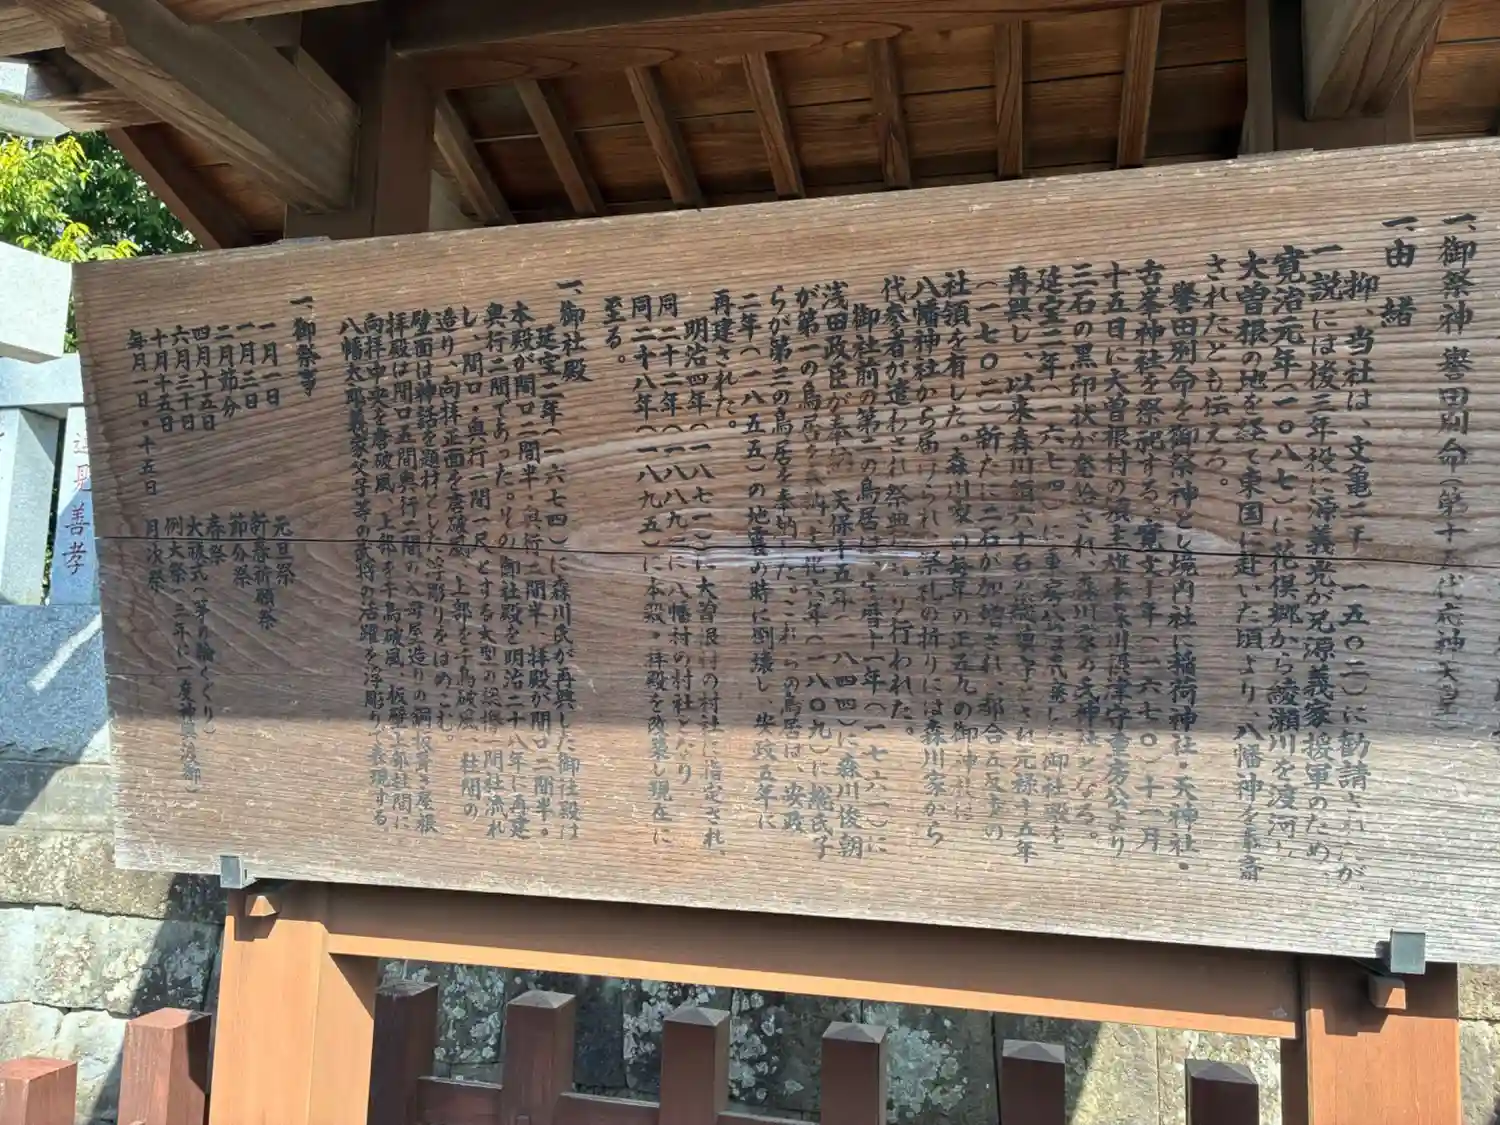 一、御祭神 誉田別命(第十五代応神天皇)
一、由緒
抑、当社は、文亀二年(一五〇二)に勧請されたが、
一説には後三年役に源義光が兄源義家援軍のため、
寛治元年(一〇八七)に花俣郷から綾瀬川を渡河し
大曽根の地を経て東国に赴いた頃より、八幡神を奉斎
されたとも伝える。
誉田別命を御祭神とし境内社に稲荷神社・天神社・
古峯神社を祭祀する。寛文十年(一六七〇)十一月
十五日に大曽根村の領主旗本森川摂津守重房公より
三石の黒印状が発給され、森川家の氏神社となる。
延宝二年(一六七四)に重房公は荒廃した御社殿を
再興し、以来森川領六十石の総鎮守とされ元禄十五年
(一七〇二)新たに二石が加増され、都合五反歩の
社領を有した。森川家の毎年の正五九の御神札は
八幡神社から届けられ、祭礼の折りには森川家から
代参者が遣わされ祭典がとり行われた。
御社前の第二の鳥居は、宝暦十一年(一七六一)に
浅田政臣が奉納、天保十五年(一八四四)に森川俊朝
が第一の鳥居を奉納、文化六年(一八〇九)に総氏子
らが第三の鳥居を奉納した。これらの鳥居は、安政
二年(一八五五)の地震の時に倒壊し、安政五年に
再建された。
明治四年(一八七一)に大曽根村の村社に指定され、
同二十二年(一八八九)に八幡村の村社となり
同二十八年(一八九五)に本殿・拝殿を改築し現在に
至る。
一、御社殿
延宝二年(一六七四)に森川氏が再興した御社殿は
本殿が間口二間半・奥行二間半、拝殿が間口二間半・
奥行二間であった。その御社殿を明治二十八年に再建
し、間口・奥行一間一尺とする大型の 間社流れ
造り、向拝正面を唐破風、上部を千鳥破風、柱間の
壁面は神話を題材とした浮彫りをはめこむ。
拝殿は間口五間奥行二間の入母屋造りの銅板葺き屋根
向拝中央を唐破風、上部を千鳥破風、板壁上部柱間に
八幡太郎義家父子等の武将の活躍を浮彫りで表現する。
一、御祭事
一月一日 元旦祭
一月三日 新春祈願祭
二月節分 節分祭
四月十五日 春祭
六月三十日 大祓式(茅の輪くぐり)
十月十五日 例大祭(三年に一度神輿渡御)
毎月一日・十五日 月次祭
善孝